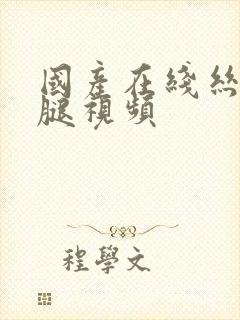 國產在綫絲
腿視頻
程學文